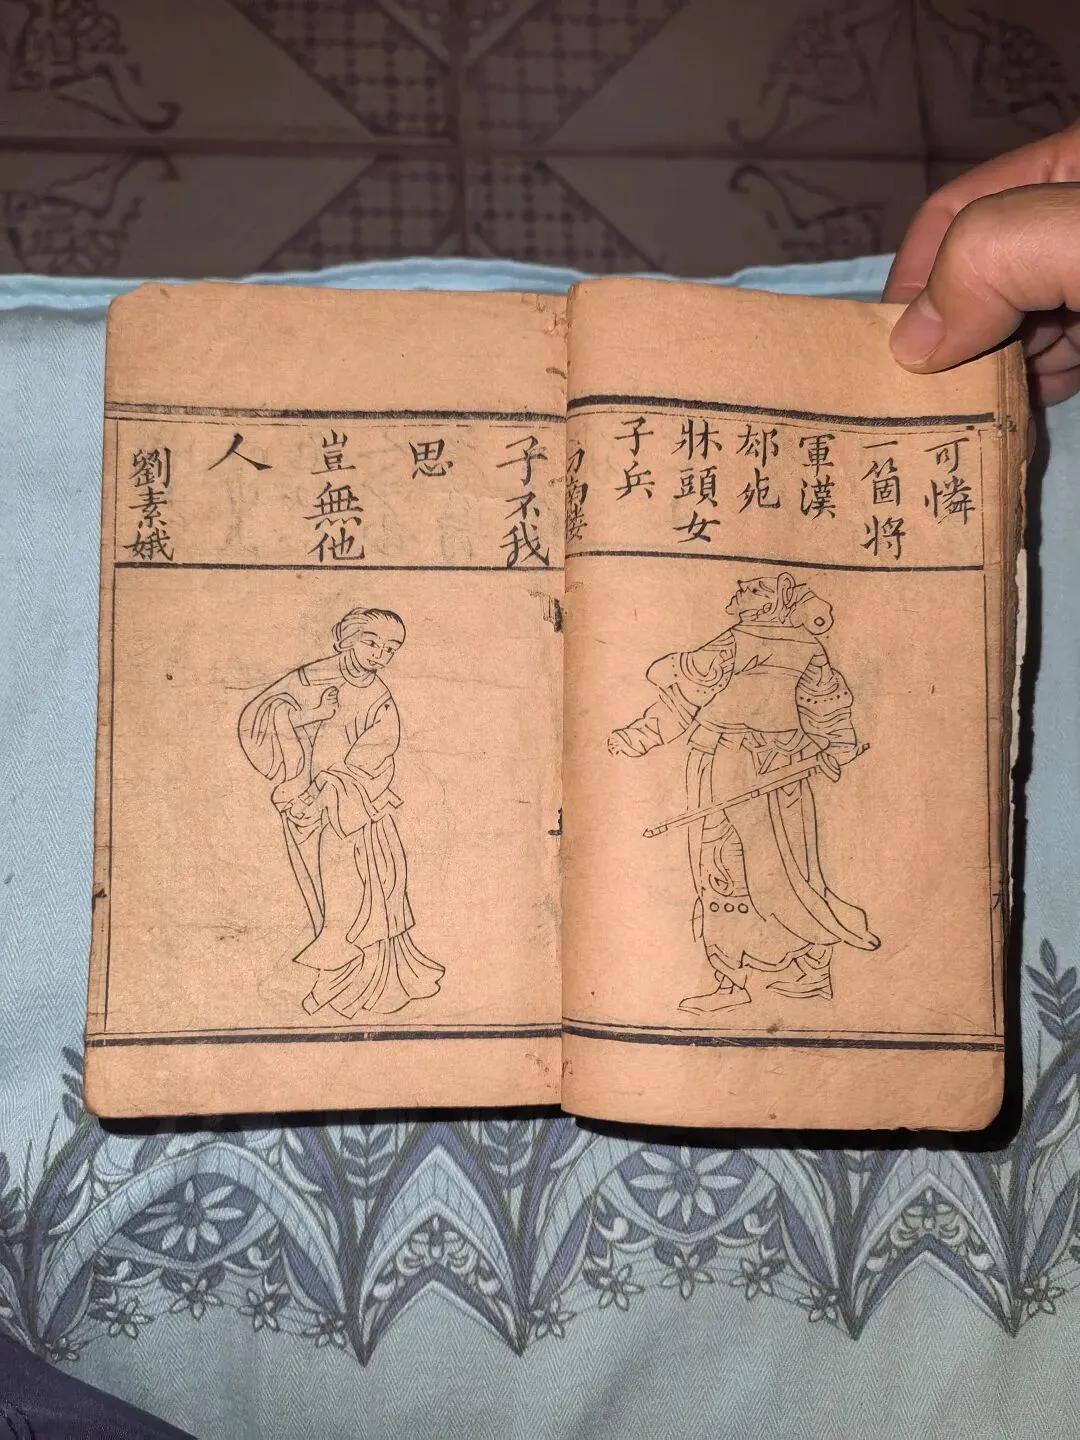 可憐
一箇將
軍漢
却死
牀頭女
子兵
子不我
思
豈無他
人
劉素娥